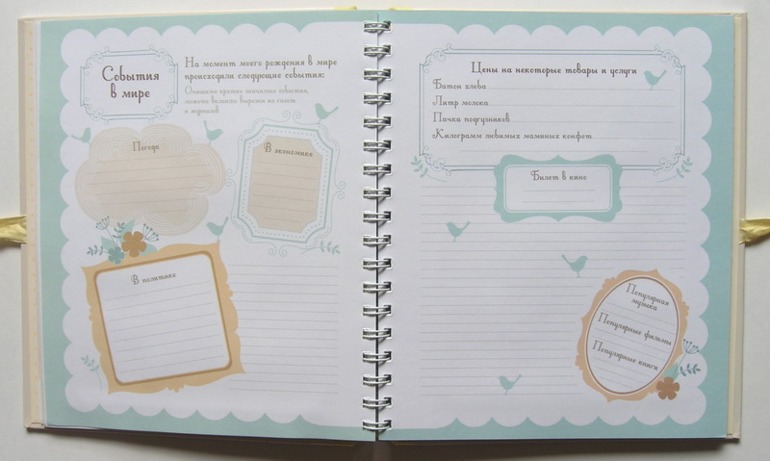 События
в мире
На момент моего рождения в мире
происходили следующие события:
Опишите кратко значимые события,
можете вклеить вырезки из газет
и журналов
Погода
В экономике
В политике
Цены на некоторые товары и услуги
Батон хлеба
Литр молока
Пачка подгузников
Килограмм любимых маминых конфет
Билет в кино
Популярная
музыка
Популярные фильмы
Популярные книги